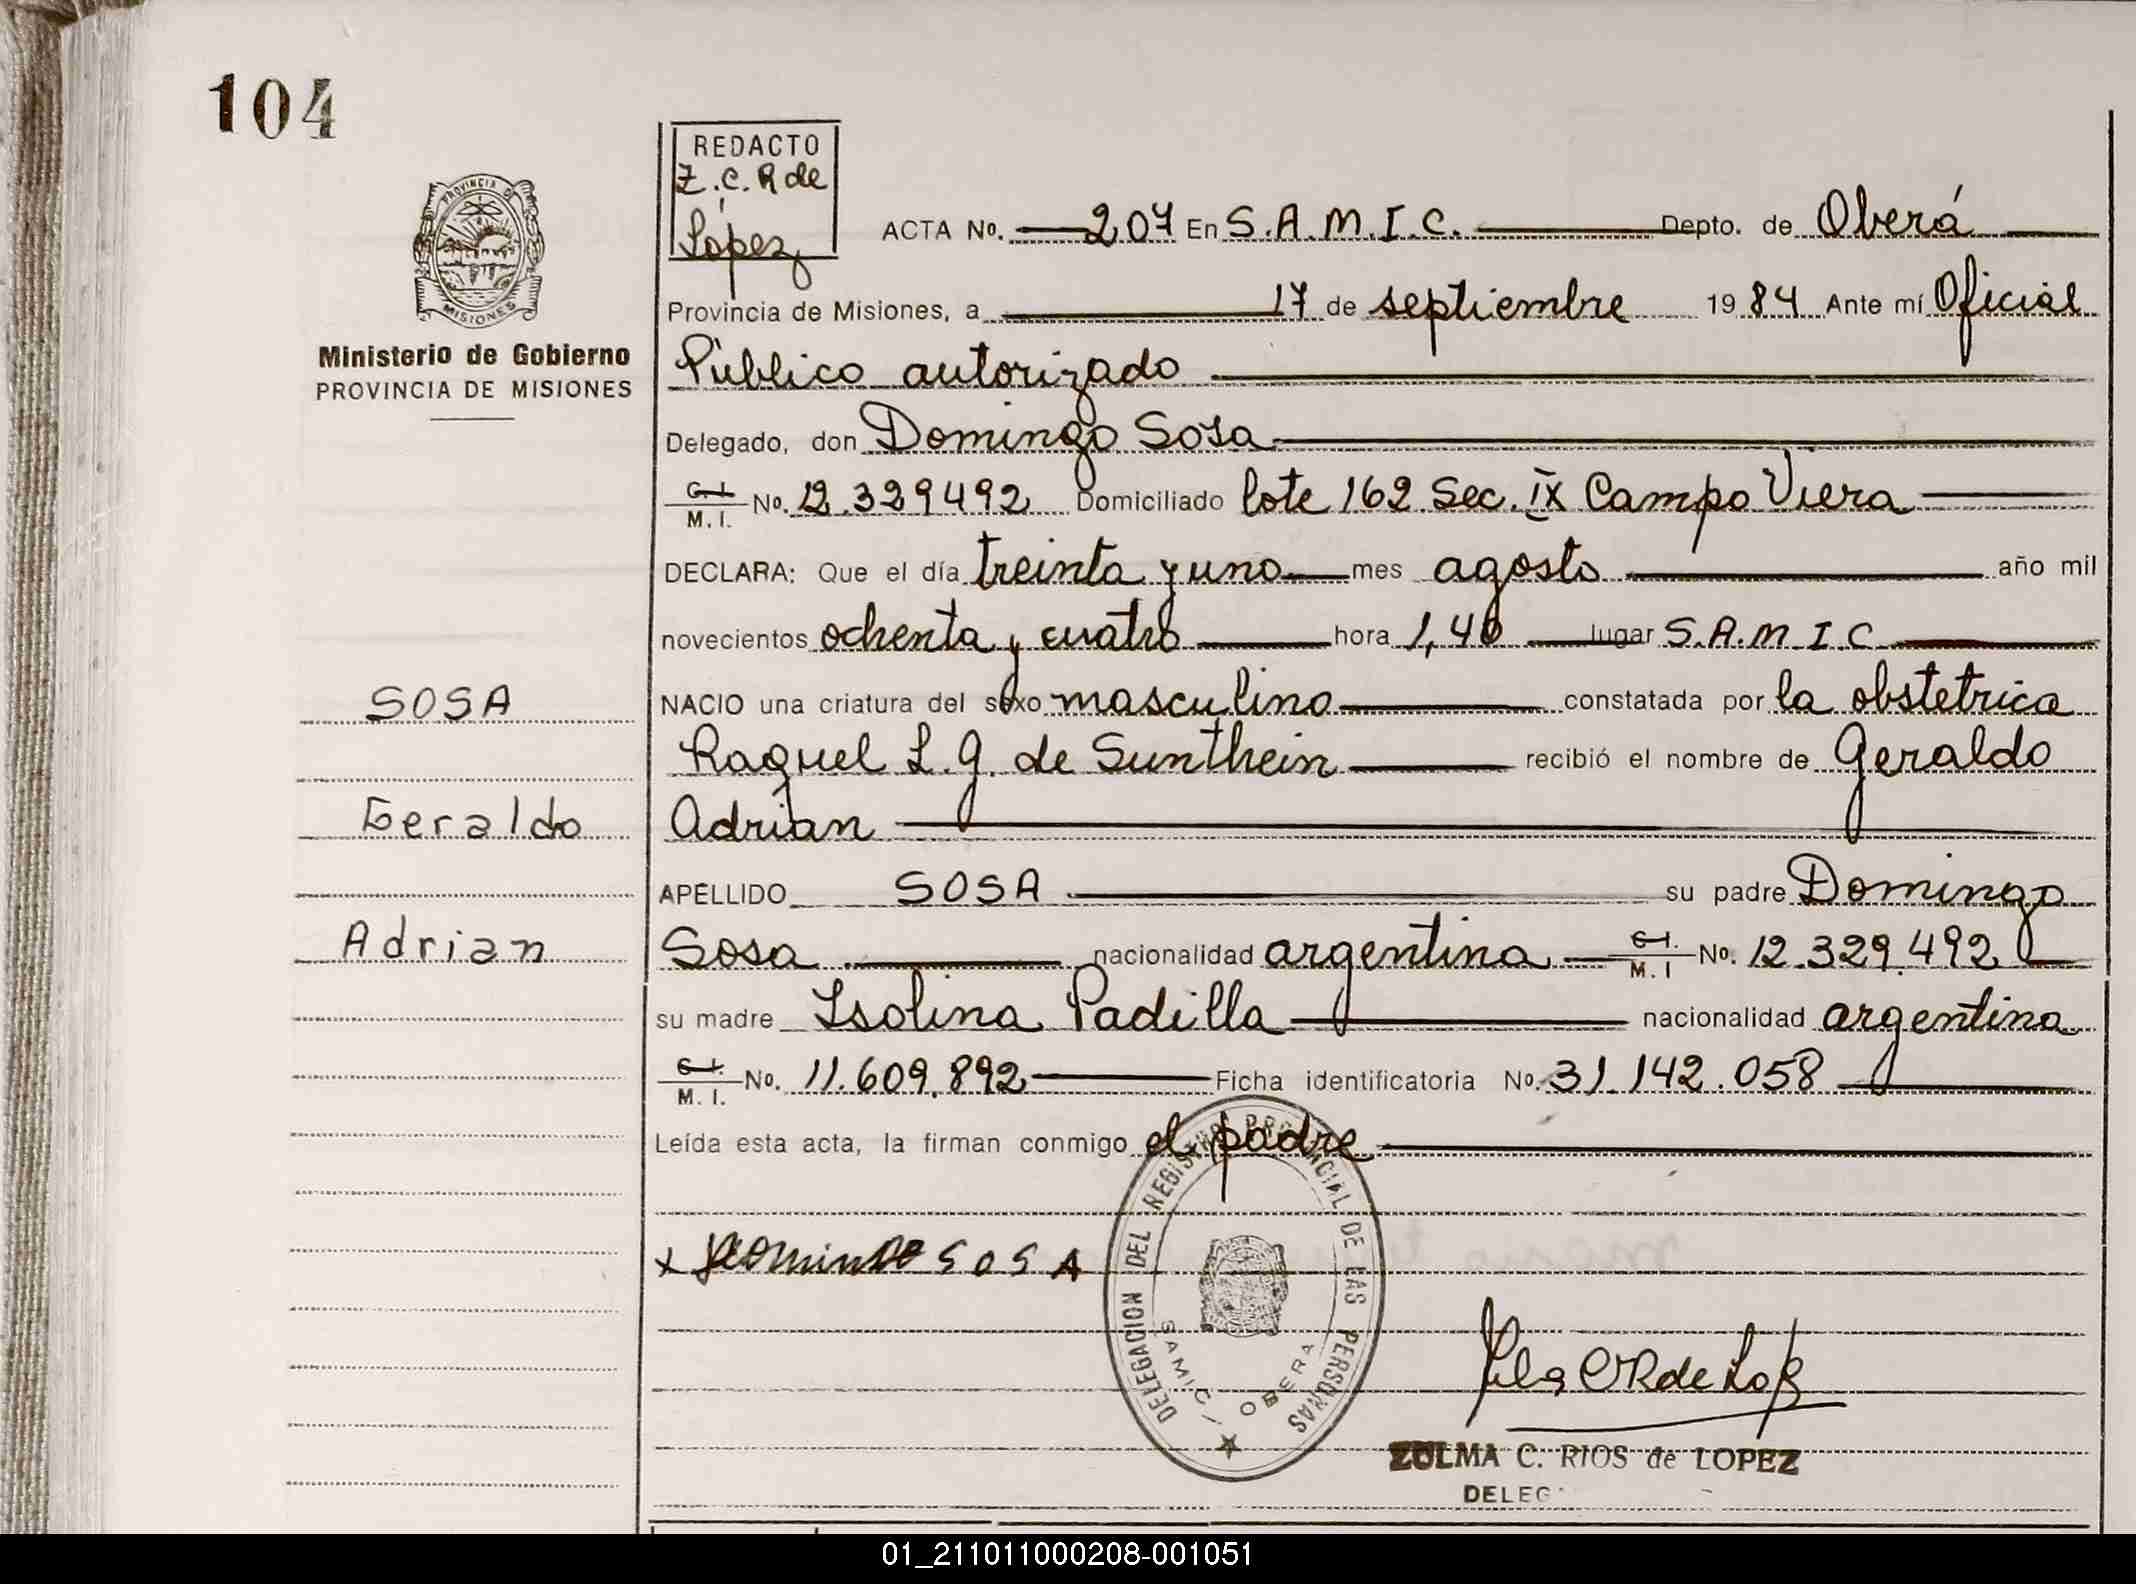 104
REDACTO
Z.C.R de
López
PROVINCIA DE
MISIONES
Ministerio de Gobierno
PROVINCIA DE MISIONES
ACTA No. 207 En S.A.M.I.C. Depto. de Oberá
Provincia de Misiones, a 17 de septiembre 1984 Ante mí Oficial
Público autorizado
Delegado, don Domingo Sosa
C.I. M.I. No. 12.329492 Domiciliado lote 162 Sec. IX Campo Viera
DECLARA: Que el día treinta y uno mes agosto año mil
novecientos ochenta y cuatro hora 1,40 lugar S.A.M.I.C
SOSA
NACIO una criatura del sexo masculino constatada por la obstetrica
Raquel L.G. de Sunthein recibió el nombre de Geraldo
Geraldo
Adrian
APELLIDO SOSA su padre Domingo
Adrian
Sosa nacionalidad argentina C.I. M.I No. 12.329.492
su madre Isolina Padilla nacionalidad argentina
C.I. M.I. No. 11.609.892 Ficha identificatoria No. 31.142.058
Leída esta acta, la firman conmigo el padre
x Domingo SOSA
DELEGACION DEL REGISTRO PROVINCIAL DE LAS PERSONAS
SAMIC / OBERA
ZULMA C. RIOS de LOPEZ
DELEG
01_211011000208-001051